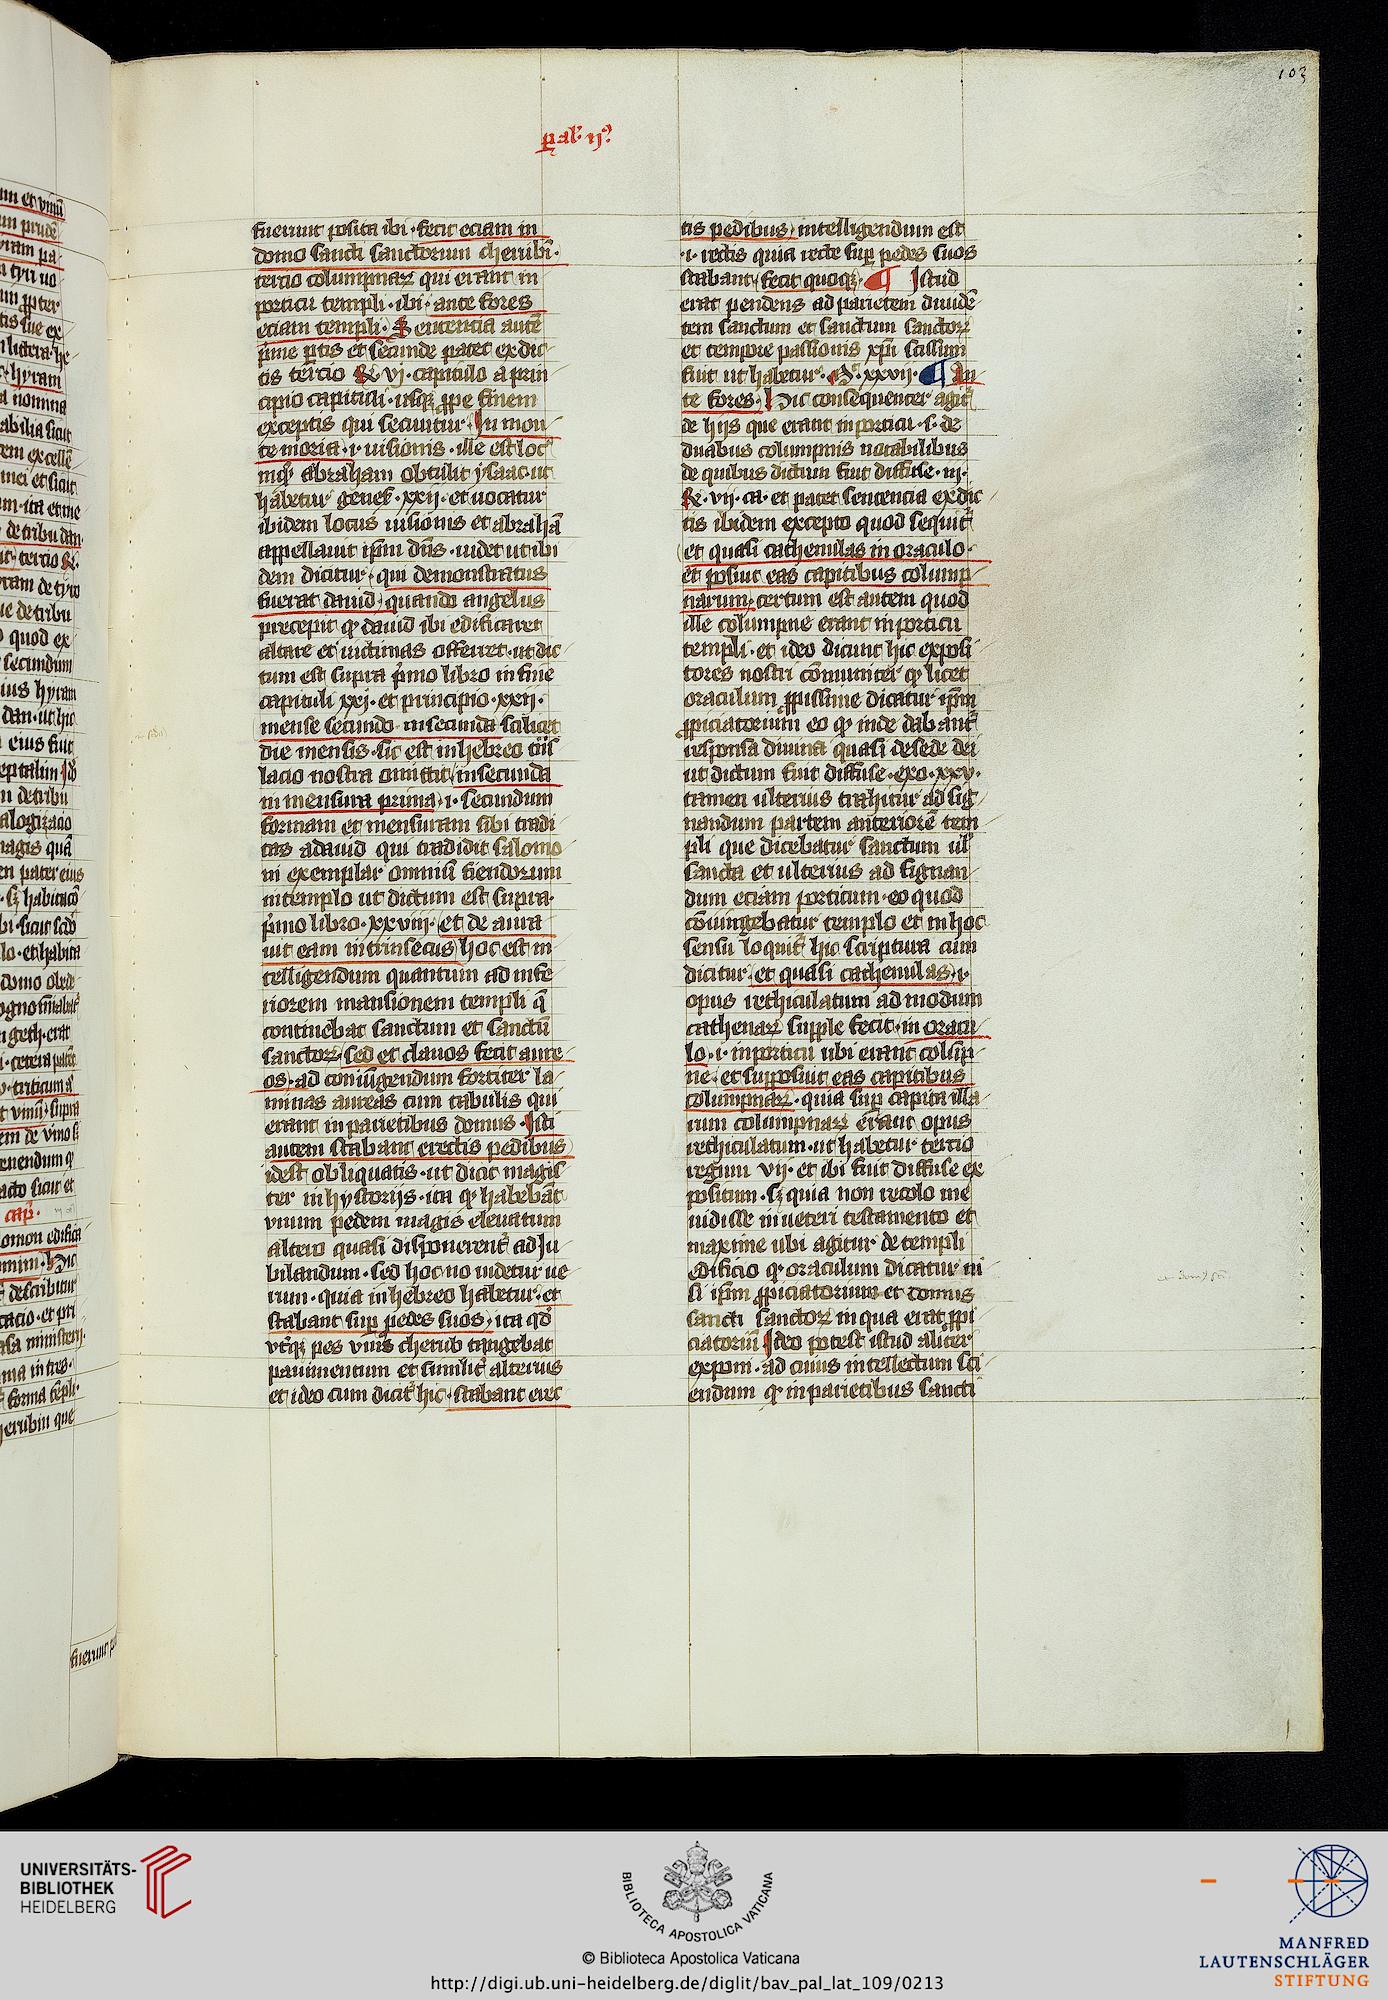 103
p̄al'. ij°.
fuerunt posita ibi · fecit eciam in
domo sancti sanctorum cherubī·
tercio columpnaꝝ qui erant in
porticu templi · ibi · ante fores
eciam templi · Sentencia autē
p̄me ꝑtis et secunde patet ex dic
tis tercio Rͤ vj · capitulo a prin
cipio capituli · usqꝫ ꝓpe finem
exceptis qui secuntur · In mon
te moria · i · uisionis · ille est loc9
inqͦ abraham obtulit ysaac · ut
habetur genes̄ · xxij · et uocatur
ibidem locus uisionis et abrahā
appellauit ip̄m dn̄s · uidet ut ibi
dem dicitur · qui demonstratus
fuerat dauid · quando angelus
precepit ꝙ dauid ibi edificaret
altare et uictimas offerret · ut dic
tum est supra p̄mo libro in fine
capituli xxj · et principio · xxij ·
mense secundo · in secunda scilicet
die mensis · sic est in hebreo
lacio nostra omittit in secunda
in mensura prima · i · secundum
formam et mensuram sibi tradi
tas a dauid qui tradidit salomo
ni exemplar omniū fiendorum
in templo ut dictum est supra ·
p̄mo libro · xxviij · et de aura
uit eam intrinsecus hoc est in
telligendum quantum ad infe
riorem mansionem templi q̄
continebat sanctum et sanctū
sanctoꝝ · sed et clauos fecit aure
os · ad coniūgendum fortiter la
minas aureas cum tabulis qui
erant in parietibus domus · Isti
autem stabant erectis pedibus
idest obliquatis · ut dicit magis
ter in hystorijs · ita ꝙ habebāt
vnum pedem magis eleuatum
altero quasi disponerent᷑ ad Ju
bilandum · sed hoc uo uidetur ue
rum · quia in hebreo habetur · et
stabant suꝑ pedes suos · ita qd̄
vt᷑qꝫ pes vni9 cherub tangebat
pauimentum et similit᷑ alterius
et ideo cum dicit᷑ hic · stabant erec
tis pedibus · intelligendum est
· i · rectis quia recte suꝑ pedes suos
stabant · fecit quoqꝫ · ¶ Istud
erat pendens ad parietem diuidē
tem sanctum et sanctum sanctoꝝ
et tempore passionis xp̄i scissum
fuit ut habetur · M͛ · xxvij · ¶ An
te fores · Hic consequenter agit᷑
de hijs que erant in porticu · s · de
duabus columpnis notabilibus
de quibus dictum fuit diffuse · iij ·
Rͤ · vij · ca · et patet sentencia ex dic
tis ibidem excepto quod sequit᷑
et quasi cathenulas in oraculo ·
et posuit eas capitibus colump
narum · certum est autem quod
ille columpne erant in porticu
templi · et ideo dicunt hic exposi
tores nostri cōmuniter ꝙ licet
oraculum ꝓpissime dicatur ip̄m
ꝓpiciatorium eo ꝙ inde dabant᷑
responsa diuina quasi de sede dei
ut dictum fuit diffuse · exo · xxv ·
tamen ulterius trahitur ad sig
nandum partem anteriorē tem
pli que dicebatur sanctum ul᷑
sancta et ulterius ad signan
dum eciam porticum · eo quod
cōiungebatur templo et in hoc
sensu loquit᷑ hic scriptura cum
dicitur · et quasi cathenulas · i ·
opus rethiculatum ad modum
cathenaꝝ supple fecit · in oracu
lo · i · in porticu ubi erant colūp
ne · et supposuit eas capitibus
columpnaꝝ · quia suꝑ capita illa
rum columpnaꝝ erant opus
rethiculatum · ut habetur tercio
regum vij · et ibi fuit diffuse ex
positum · sꝫ quia non recolo me
uidisse in ueteri testamento et
maxime ubi agitur de templi
edificio ꝙ oraculum dicatur ni
si ip̄m ꝓpiciatorium et domus
sancti sanctoꝝ in qua erat ꝓpi
ciatoriū Ideo potest istud aliter
exponi · ad cuius intellectum sci
endum ꝙ in parietibus sancti
UNIVERSITÄTS-
BIBLIOTHEK
HEIDELBERG
BIBLIOTECA APOSTOLICA VATICANA
© Biblioteca Apostolica Vaticana
http://digi.ub.uni-heidelberg.de/diglit/bav_pal_lat_109/0213
MANFRED
LAUTENSCHLÄGER
STIFTUNG